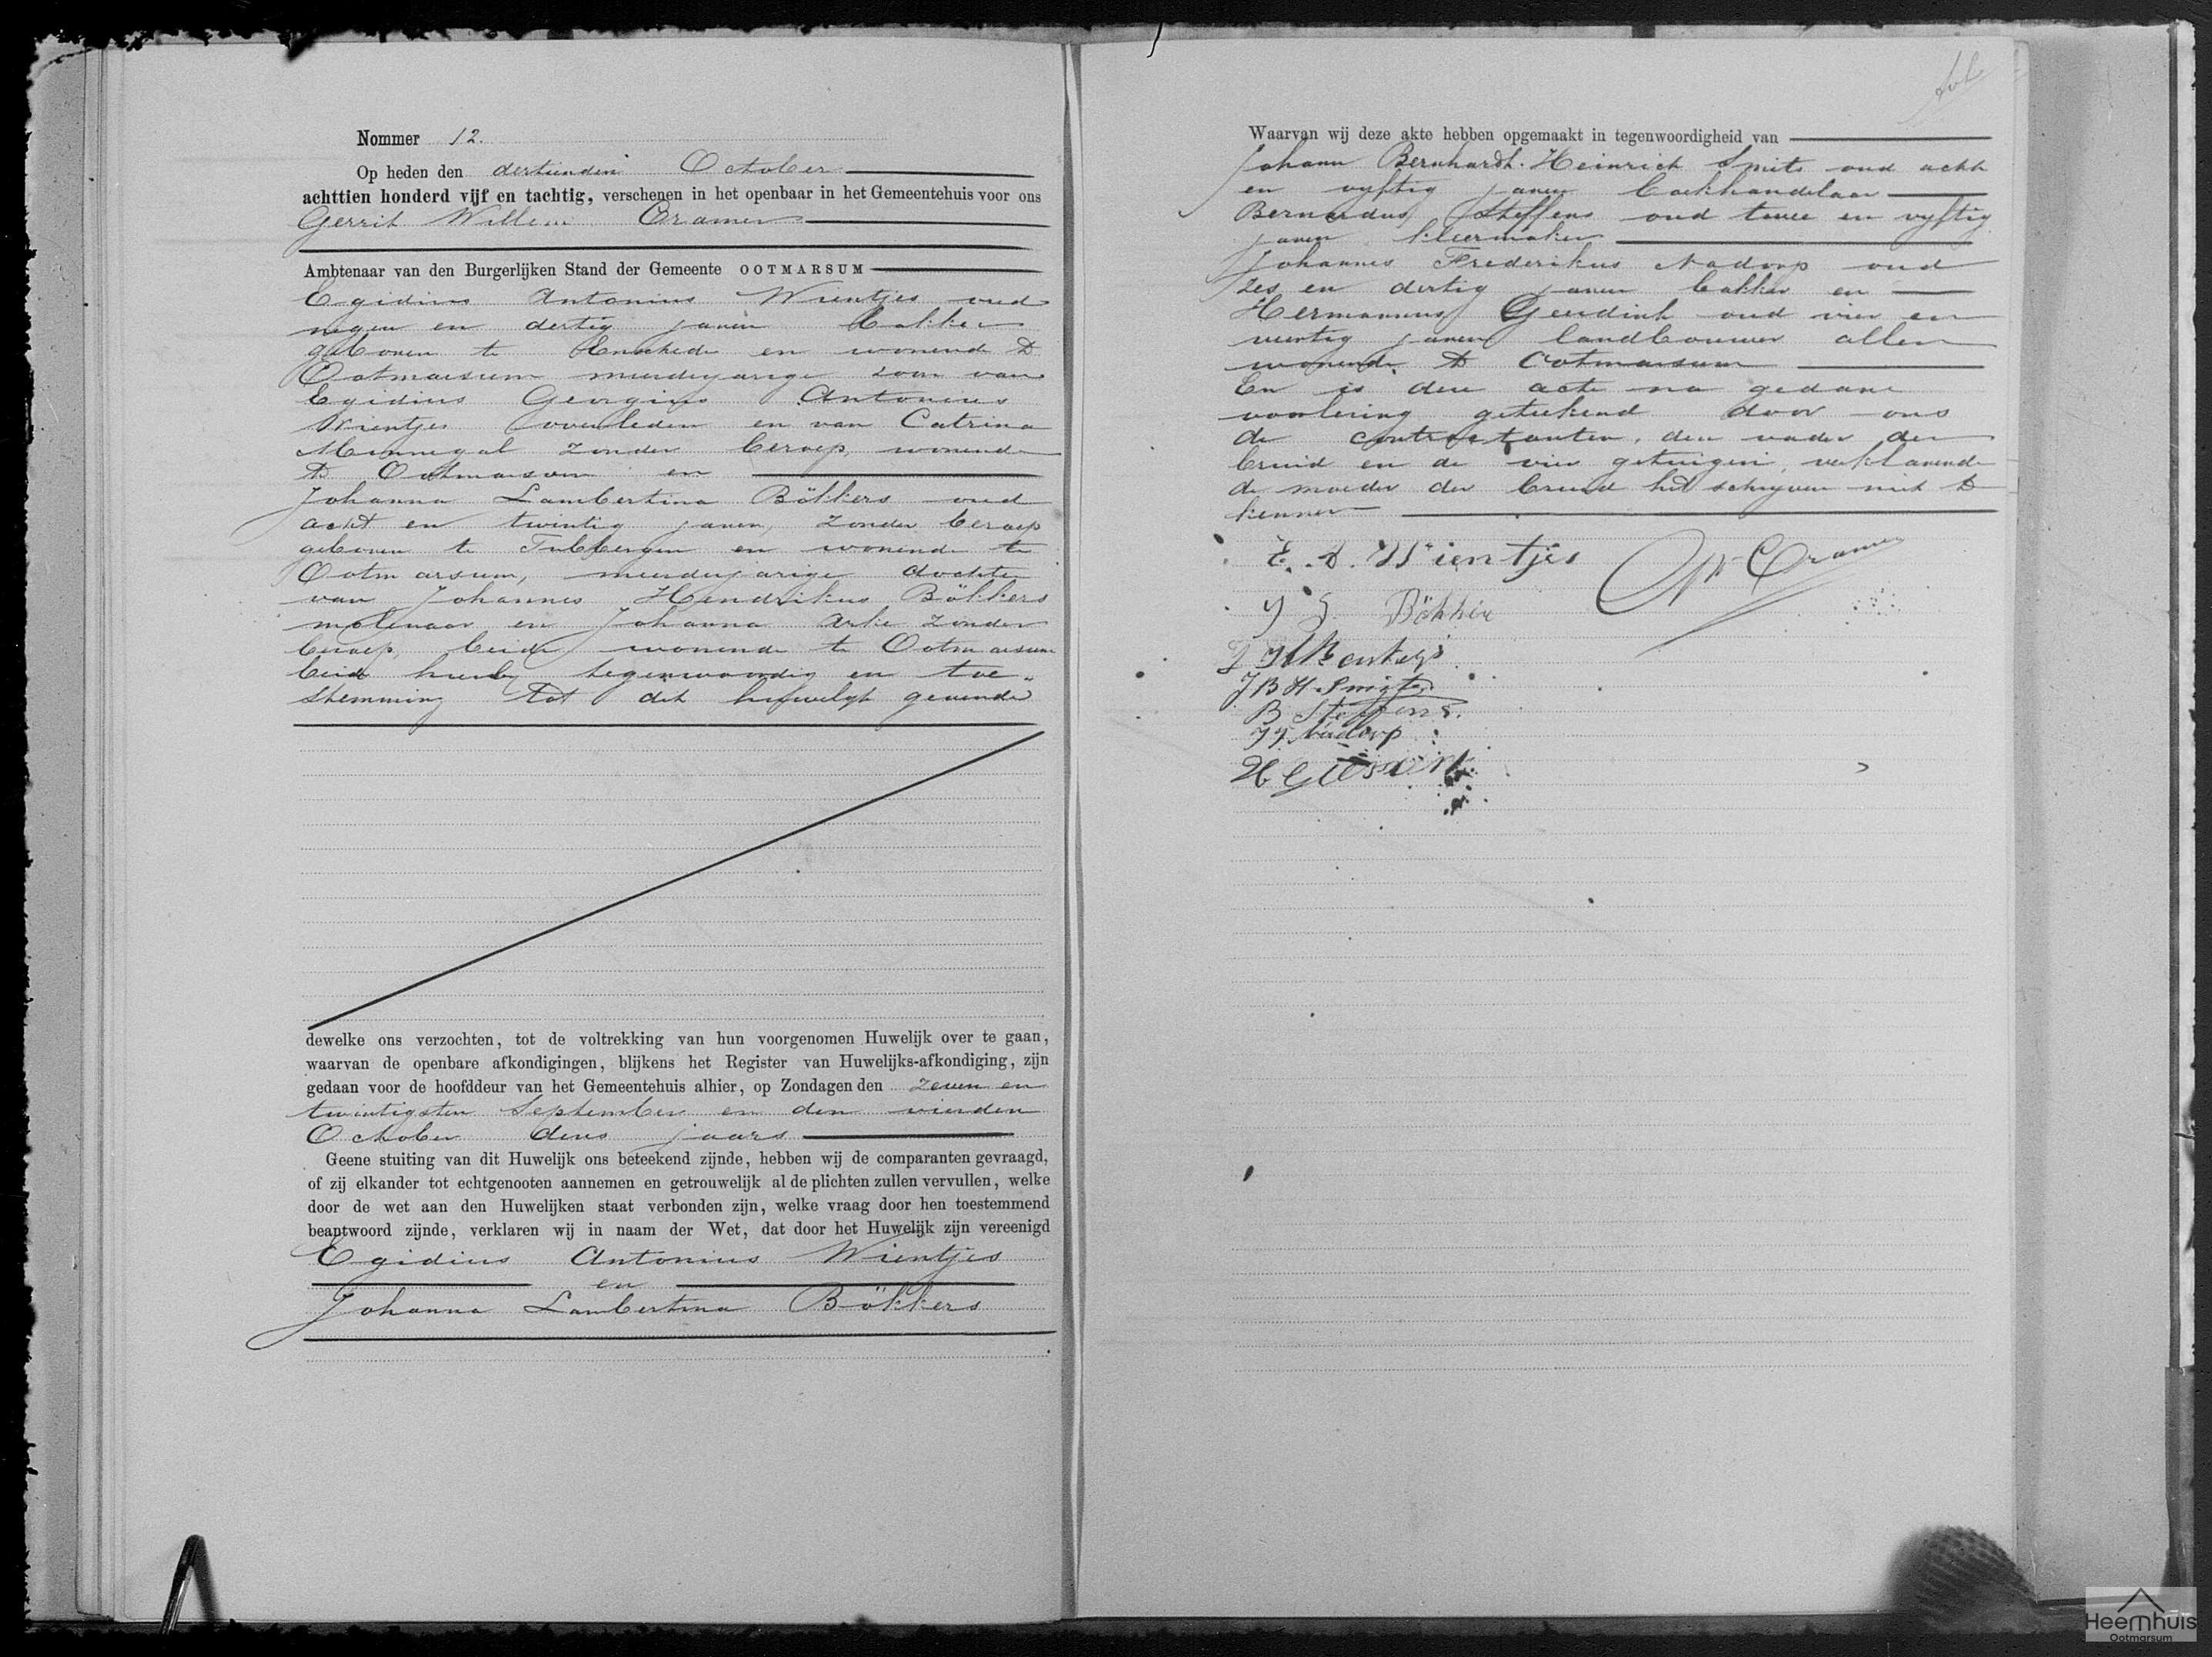 Nommer 12.
Op heden den dertienden October
achttien honderd vijf en tachtig, verschenen in het openbaar in het Gemeentehuis voor ons
Gerrit Willem Cramer
Ambtenaar van den Burgerlijken Stand der Gemeente OOTMARSUM
Egidius Antonius Wientjes oud
negen en dertig jaren bakker
geboren te Enschede en wonende te
Ootmarsum meerderjarige zoon van
Egidius Georgius Antonius
Wientjes overleden en van Catrina
zonder beroep, wonende
te Ootmarsum en
Johanna Lambertina Bökkers oud
acht en twintig jaren, zonder beroep
geboren te Tubbergen en wonende te
Ootmarsum, meerderjarige dochter
van Johannes Hendrikus Bökkers
molenaar en Johanna Arke zonder
beroep, beide wonende te Ootmarsum
beide hierby tegenwoordig en toe„
stemming tot dit huwelyk gevende
dewelke ons verzochten, tot de voltrekking van hun voorgenomen Huwelijk over te gaan,
waarvan de openbare afkondigingen, blijkens het Register van Huwelijks-afkondiging, zijn
gedaan voor de hoofddeur van het Gemeentehuis alhier, op Zondagen den zeven en
twintigsten September en den vierden
October dezes jaars
Geene stuiting van dit Huwelijk ons beteekend zijnde, hebben wij de comparanten gevraagd,
of zij elkander tot echtgenooten aannemen en getrouwelijk al de plichten zullen vervullen, welke
door de wet aan den Huwelijken staat verbonden zijn, welke vraag door hen toestemmend
beantwoord zijnde, verklaren wij in naam der Wet, dat door het Huwelijk zijn vereenigd
Egidius Antonius Wientjes
en
Johanna Lambertina Bökkers
Waarvan wij deze akte hebben opgemaakt in tegenwoordigheid van
Johann Bernhardt Heinrich Smits oud acht
en vyftig jaren boekhandelaar
Bernardus Steffens oud twee en vyftig
jaren kleermaker
Johannes Frederikus Nadorp oud
zes en dertig jaren bakker en
Hermannus Geerdink oud vier en
veertig jaren landbouwer allen
wonende te Ootmarsum
En is deze acte na gedane
voorlezing geteekend door ons
de contractanten, den vader der
bruid en de vier getuigen, verklarende
de moeder der bruid het schryven niet te
kennen
E. A. Wientjes
GW Cramer
J L Bökkers
J H Bökkers
J B H Smits
B Steffens.
J F Nadorp
H Geerdink
Heemhuis
Ootmarsum